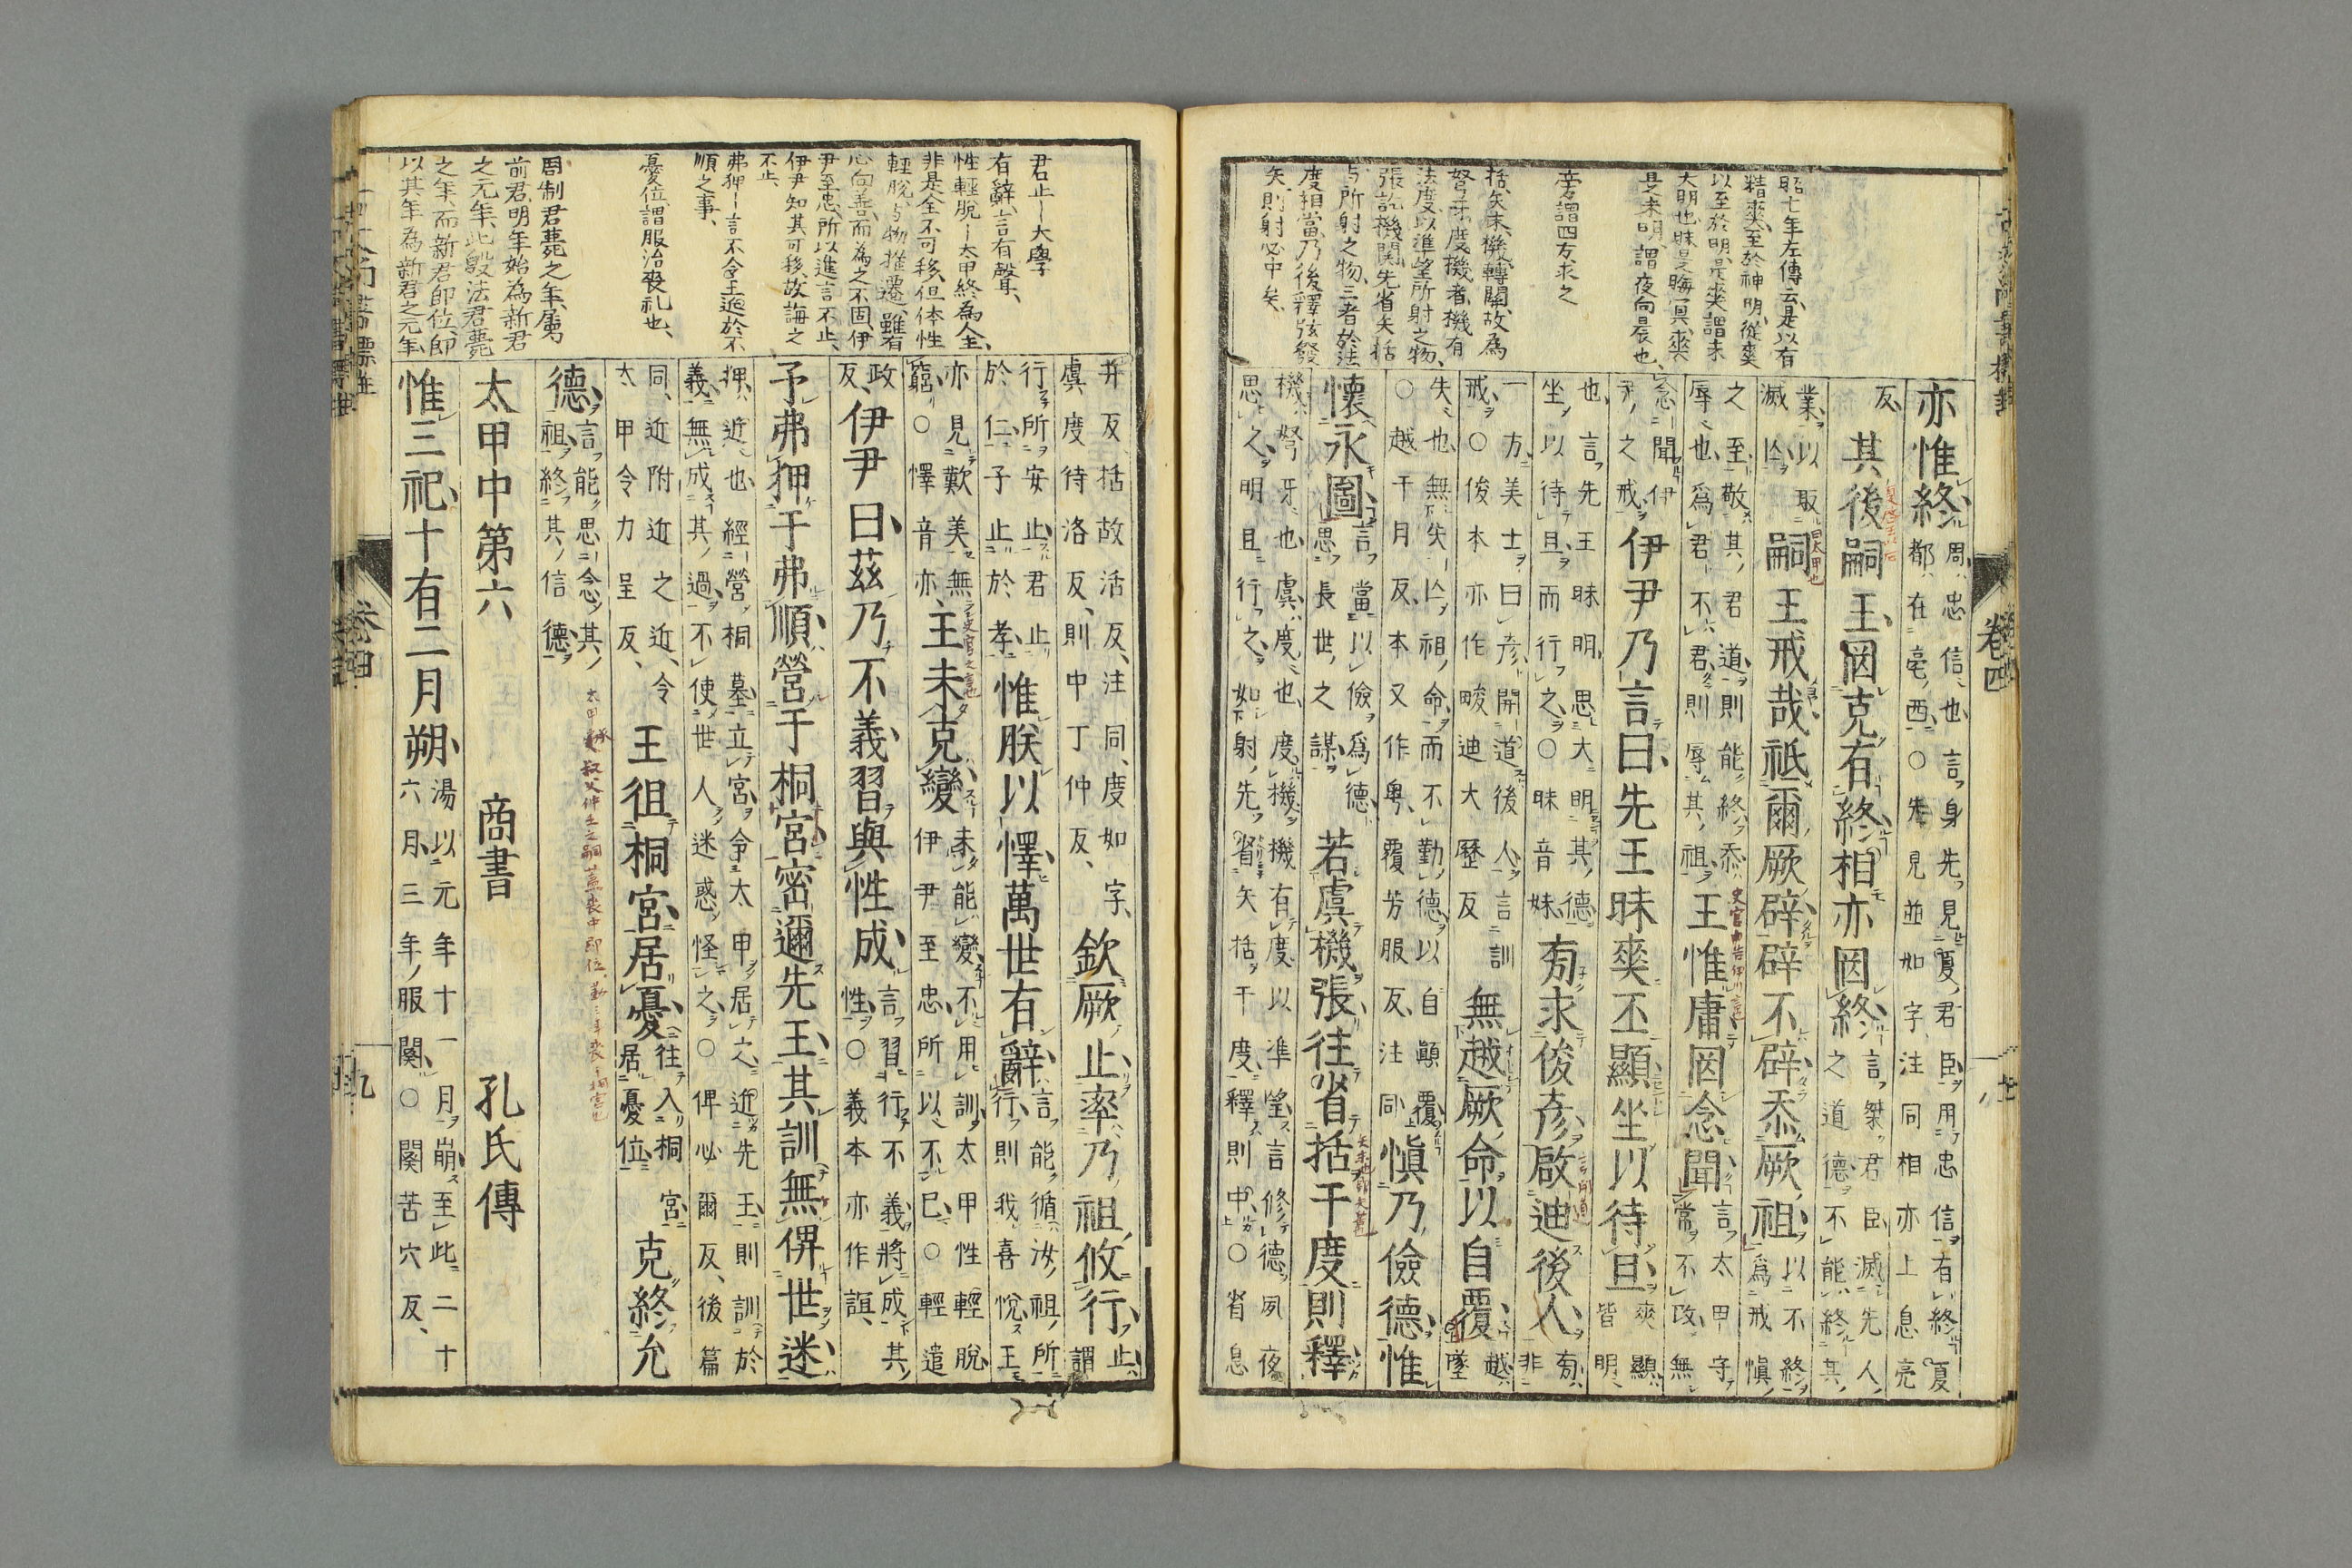 昭七年左傳云是以有
精爽至於神明從爽
以至於明是爽謂未
大明也昧是晦冥爽
是未明謂夜向晨也
旁謂四方求之
括矢末機轉關故爲
弩牙度機者機有
法度以準望所射之物
張訖機關先省矢括
与所射之物三者於法
度相當乃後釋弦發
矢則射必中矣
亦惟終周忠信也言身先見夏君臣用忠信有終夏
都在亳西〇先見並如字注同相亦上息亮
反其後嗣王罔克有終相亦罔終言桀君臣滅先人
之道德不能終其
業以取
滅亡嗣王戒哉祗爾厥辟辟不辟忝厥祖以不終
爲戒愼
之至敬其君道則能終忝
辱也爲君不君則辱其祖王惟庸罔念聞言太甲守
常不改無
念聞伊
尹之戒伊尹乃言曰先王昧爽丕顯坐以待旦爽顯
皆明
也言先王昧明思大明其德
坐以待旦而行之〇昧音妹旁求俊彥啟迪後人旁
非
一方美士曰彥開道後人言訓
戒〇俊本亦作畯迪大歷反無越厥命以自覆越
墜
失也無失亡祖命而不勤德以自顚覆
〇越于月反本又作粤覆芳服反注同愼乃儉德惟
懷永圖言當以儉爲德
思長世之謀若虞機張往省括于度則釋
機弩牙也虞度也度機機有度以準望言修德夙夜
思之明旦行之如射先省矢括于度釋則中〇省息
卷四
君止ー大學
有辭言有聲
性輕脫ー太甲終為人主
非是全不可移但体性
輕脫与物推遷雖有
心向善而為之不固伊
尹至忠所以進言不止
伊尹知其可移故誨之
不止
弗狎ー言不令王近於不
順之事
憂位謂服治喪礼也
周制君薨之年屬
前君明年始為新君
之元年此殷法君薨
之年而新君即位即
以其年為新君之元年
井反括故活反注同度如字
虞度待洛反則中丁仲反欽厥止率乃祖攸行止謂
行所安止君止
於仁子止於孝惟朕以懌萬世有辭言能循汝祖所
行則我喜悅王
亦見歎美無
窮〇懌音亦王未克變未能變不用訓太甲性輕脫
伊尹至忠所以不已〇輕遣
政
反伊尹曰茲乃不義習與性成言習行不義將成其
性〇義本亦作誼
予弗狎于弗順營于桐宮密邇先王其訓無俾世迷
狎近也經營桐墓立宮令太甲居之近先王則訓於
義無成其過不使世人迷惑怪之〇俾必爾反後篇
同近附近之近令
太甲令力呈反王徂桐宮居憂往入桐宮
居憂位克終允
德言能思念其
祖終其信德
太甲中第六　商書　孔氏傳
惟三祀十有二月朔湯以元年十一月崩至此二十
六月三年服闋〇闋苦穴反
卷四
九